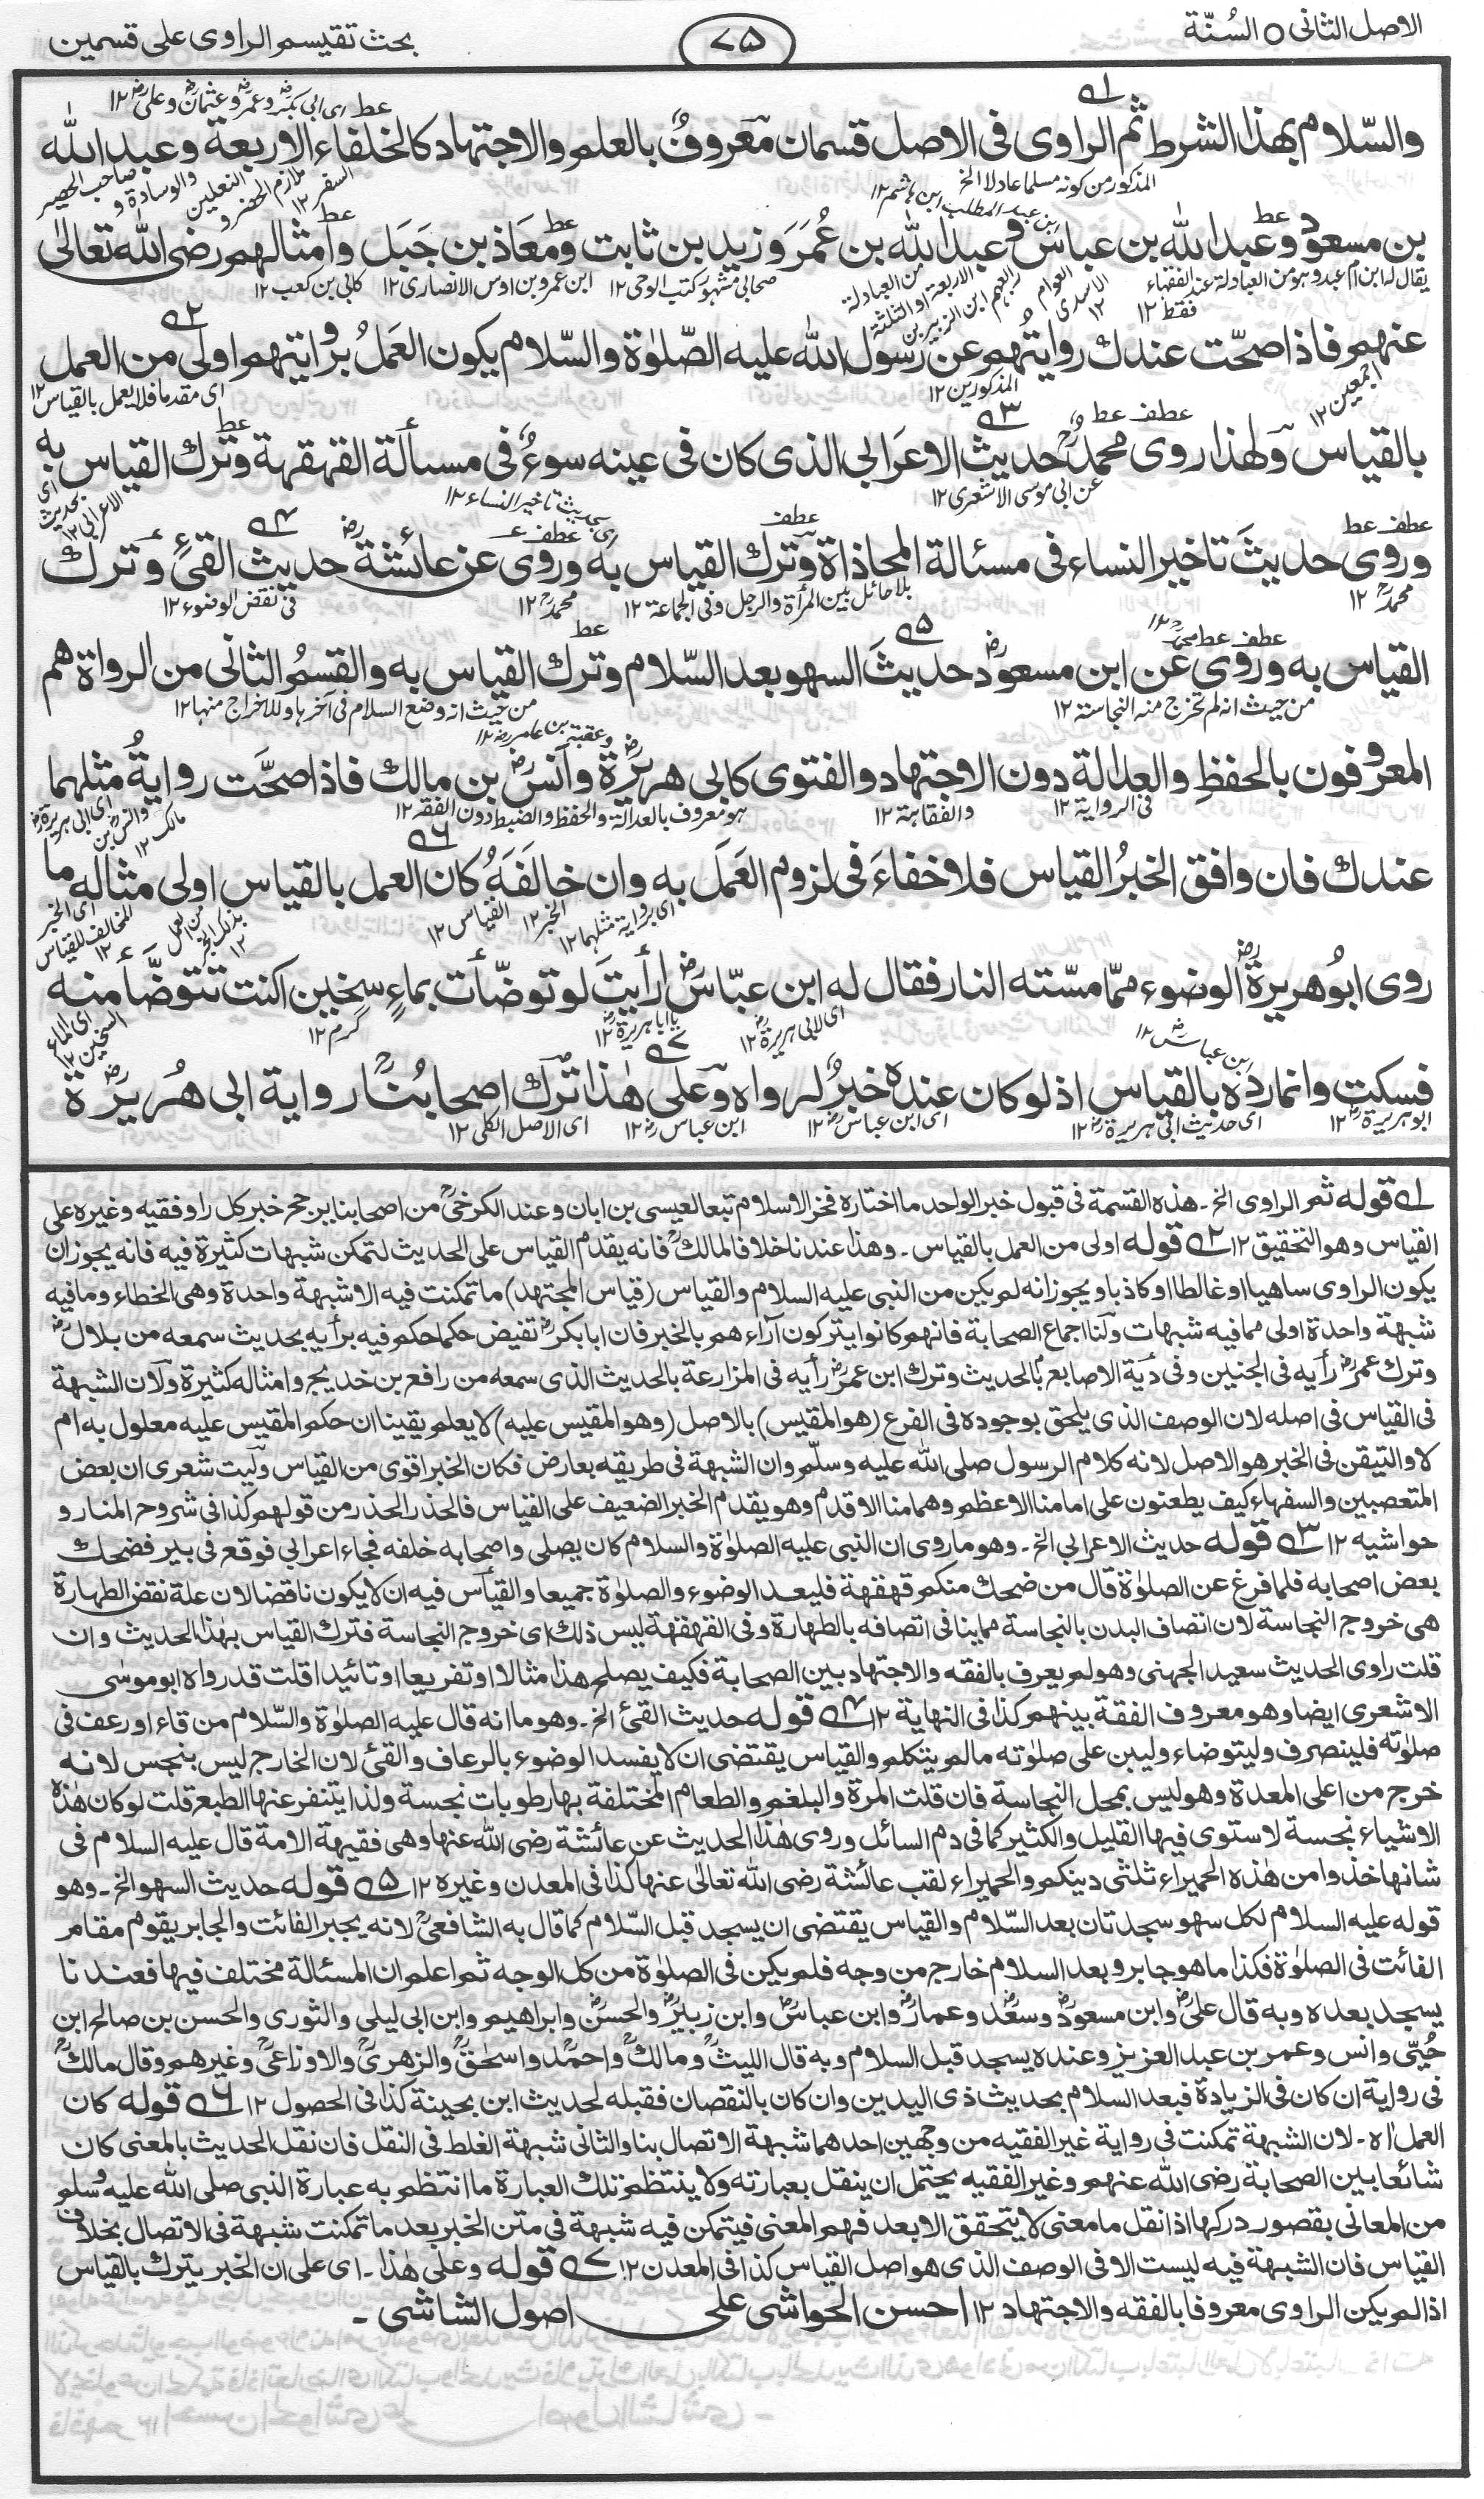 الاصل الثانی ○ السُنّة
٧٥
بحث تقیسم الراوی علی قسمین
عط ای ابی بکرؓ وعمرؓ وعثمانؓ وعلیؓ ١٢
والسّلام بهذا الشرط ثم الراوی فی الاصل قسمان معروفٌ بالعلم والاجتهاد کالخلفاء الاربعة وعبد اللّٰه
المذکور من کونه مسلما عادلا الخ
بن مسعود وعبد اللّٰه بن عباس وعبد اللّٰه بن عُمَرَ وزید بن ثابت ومعَاذ بن جَبَل وامثالهم رضی اللّٰه تعالیٰ
یقال له ابن ام عبد وهو من العبادلة عند الفقهاء فقط ١٢
صحابی مشهور کتب الوحی ١٢ ابن عمرو بن اوس الانصاری ١٢ کابی بن کعب ١٢
عنهم فاذا صحّت عندك روایتُهم عن رسول اللّٰه علیه الصّلوٰة والسّلام یکون العَمَلُ بروایتهم اولی من العمل
المذکورین ١٢
ای مقدما فلا یعمل بالقیاس ١٢
بالقیاس ولهٰذا روی محمدؒ حدیث الاعرابی الذی کان فی عینه سوءٌ فی مسألة القهقهة وترك القیاس به
عن ابی موسی الاشعری ١٢
وروی حدیثَ تاخیر النساء فی مسئالة المحاذاة وترك القیاس به وروی عن عائشةؓ حدیث القئِ وترك
محمدؒ ١٢ بلا حائل بین المرأة والرجل وفی الجماعة ١٢ محمدؒ ١٢ فی نقض الوضوء ١٢
القیاس به وروی عن ابن مسعودؓ حدیثَ السهو بعد السّلام وترك القیاس به والقسمُ الثانی من الرواة هم
من حیث انه لم تخرج منه النجاستة ١٢ من حیث انه وضع السلام فی آخرها وللاخراج منها ١٢
وعقبة بن عامرؓ ١٢
المعروفون بالحفظِ والعدالة دون الاجتهاد والفتوی کابی هریرةؓ وانسؓ بن مالك فاذا صحَّت روایةُ مثلهما
فی الروایة ١٢ والفقاهة ١٢ هو معروف بالعدالة والحفظ والضبط دون الفقه ١٢
عندك فان وافق الخبرُ القیاس فلا خفاءَ فی لزوم العَمَل به وان خالَفَهٗ کان العمل بالقیاس اولی مثاله ما
ای بروایة مثلهما ١٢ الخبر ١٢ القیاس ١٢
روی ابُو هریرةؓ الوضوء ممّا مسّته النار فقال له ابن عبّاسؓ أرأیتَ لو توضّأت بماءٍ سخین اکنت تتوضّأ منه
ابن عباسؓ ١٢ ای لابی هریرةؓ ١٢ یا ابا هریرةؓ ١٢ گرم ١٢
فسکت وانما ردّه بالقیاس اذ لو کان عنده خبرٌ لرواه وعلی هٰذا ترك اصحابُنا روایة ابی هُریرةؓ
ابو هریرةؓ ١٢ ای حدیث ابی هریرةؓ ١٢ ای ابن عباسؓ ١٢ ابن عباسؓ ١٢ ای الاصل الکلی ١٢
١ قوله ثم الراوی الخ۔ هذه القسمة فی قبول خبر الواحد ما اختاره فخر الاسلام تبعا لعیسی بن ابان وعند الکرخیؒ من اصحابنا یرجح خبر کل راو فقیه وغیره علی
القیاس وهو التحقیق ١٢ ٢ قوله اولی من العمل بالقیاس۔ وهذا عندنا خلافا لمالكؒ فانه یقدم القیاس علی الحدیث لتمکن شبهات کثیرة فیه فانه یجوز ان
یکون الراوی ساهیا او غالطا او کاذبا ویجوز انه لم یکن من النبی علیه السلام والقیاس (قیاس المجتهد) ما تمکنت فیه الا شبهة واحدة وهی الخطاء وما فیه
شبهة واحدة اولی مما فیه شبهات ولنا اجماع الصحابة فانهم کانوا یترکون آراءهم بالخبر فان ابا بکرؓ نقیض حکما حکم فیه برأیه بحدیث سمعه من بلالؓ
وترك عمرؓ رأیه فی الجنین وفی دیة الاصابع بالحدیث وترك ابن عمرؓ رأیه فی المزارعة بالحدیث الذی سمعه من رافع بن خدیج وامثاله کثیرة ولان الشبهة
فی القیاس فی اصله لان الوصف الذی یلحق بوجوده فی الفرع (هو المقیس) بالاصل (وهو المقیس علیه) لا یعلم یقینا ان حکم المقیس علیه معلول به ام
لا والتیقن فی الخبر هو الاصل لانه کلام الرسول صلی اللّٰه علیه وسلّم وان الشبهة فی طریقه بعارض فکان الخبر اقوی من القیاس ولیت شعری ان بعض
المتعصبین والسفهاء کیف یطعنون علی امامنا الاعظم وهمامنا الاقدم وهو یقدم الخبر الضعیف علی القیاس فالحذر الحذر من قولهم کذا فی شروح المنار و
حواشیه ١٢ ٣ قوله حدیث الاعرابی الخ۔ وهو ما روی ان النبی علیه الصلوٰة والسلام کان یصلی واصحابه خلفه فجاء اعرابی فوقع فی بیر فضحك
بعض اصحابه فلما فرغ عن الصلوٰة قال من ضحك منکم قهقهة فلیعد الوضوء والصلوٰة جمیعا والقیاس فیه ان لا یکون ناقضا لان علة نقض الطهارة
هی خروج النجاسة لان اتصاف البدن بالنجاسة مما ینافی اتصافه بالطهارة وفی القهقهة لیس ذلك ای خروج النجاسة فترك القیاس بهٰذا الحدیث وان
قلت راوی الحدیث سعید الجهنی وهو لم یعرف بالفقه والاجتهاد بین الصحابة فکیف یصلح هذا مثالا او تفریعا او تائیدا قلت قد رواه ابو موسی
الاشعری ایضا وهو معروف الفقة بینهم کذا فی النهایة ١٢ ٤ قوله حدیث القئ الخ۔ وهو ما انه قال علیه الصلوٰة والسّلام من قاء او رعف فی
صلوٰته فلینصرف ولیتوضاء ولیبن علی صلوٰته مالم یتکلم والقیاس یقتضی ان لا یفسد الوضوء بالرعاف والقئ لان الخارج لیس بنجس لانه
خرج من اعلی المعدة وهو لیس بمحل النجاسة فان قلت المرة والبلغم والطعام المختلفة بها رطوبات نجسة ولذا یتنفر عنها الطبع قلت لو کان هٰذه
الاشیاء نجسة لاستوی فیها القلیل والکثیر کما فی دم السائل وروی هٰذا الحدیث عن عائشة رضی اللّٰه عنها وهی فقیهة الامة قال علیه السلام فی
شانها خذوا من هٰذه الحمیراء ثلثی دینکم والحمیراء لقب عائشة رضی اللّٰه تعالیٰ عنها کذا فی المعدن وغیره ١٢ ٥ قوله حدیث السهو الخ۔ وهو
قوله علیه السلام لکل سهو سجدتان بعد السّلام والقیاس یقتضی ان یسجد قبل السّلام کما قال به الشافعیؒ لانه یجبر الفائت والجابر یقوم مقام
الفائت فی الصلوٰة فکذا ما هو جابر وبعد السلام خارج من وجه فلم یکن فی الصلوٰة من کل الوجه ثم اعلم ان المسئالة مختلف فیها فعندنا
یسجد بعده وبه قال علیؓ وابن مسعودؓ وسعدؓ وعمارؓ وابن عباسؓ وابن زبیرؓ والحسنؓ وابراهیم وابن ابی لیلی والثوری والحسن بن صالح ابن
حُیّی وانس وعمر بن عبد العزیز وعنده یسجد قبل السلام وبه قال اللیثؒ ومالكؒ واحمدؒ واسحٰقؒ والزهریؒ والاوزاعیؒ وغیرهم وقال مالكؒ
فی روایة ان کان فی الزیادة فبعد السلام بحدیث ذی الیدین وان کان بالنقصان فقبله لحدیث ابن بحینة کذا فی الحصول ١٢ ٦ قوله کان
العمل اه۔ لان الشبهة تمکنت فی روایة غیر الفقیه من وجهین احدهما شبهة الاتصال بنا والثانی شبهة الغلط فی النقل فان نقل الحدیث بالمعنی کان
شائعا بین الصحابة رضی اللّٰه عنهم وغیر الفقیه یحتمل ان ینقل بعبارته ولا ینتظم تلك العبارة ما انتظم به عبارة النبی صلی اللّٰه علیه وسلم
من المعانی بقصور درکها اذ انقل ما معنی لا یتحقق الا بعد فهم المعنی فیتمکن فیه شبهة فی متن الخبر بعد ما تمکنت شبهة فی الاتصال بخلاف
القیاس فان الشبهة فیه لیست الا فی الوصف الذی هو اصل القیاس کذا فی المعدن ١٢ ٧ قوله وعلی هٰذا۔ ای علی ان الخبر یترك بالقیاس
اذا لم یکن الراوی معروفا بالفقه والاجتهاد ١٢ احسن الحواشی علی اصول الشاشی ۔